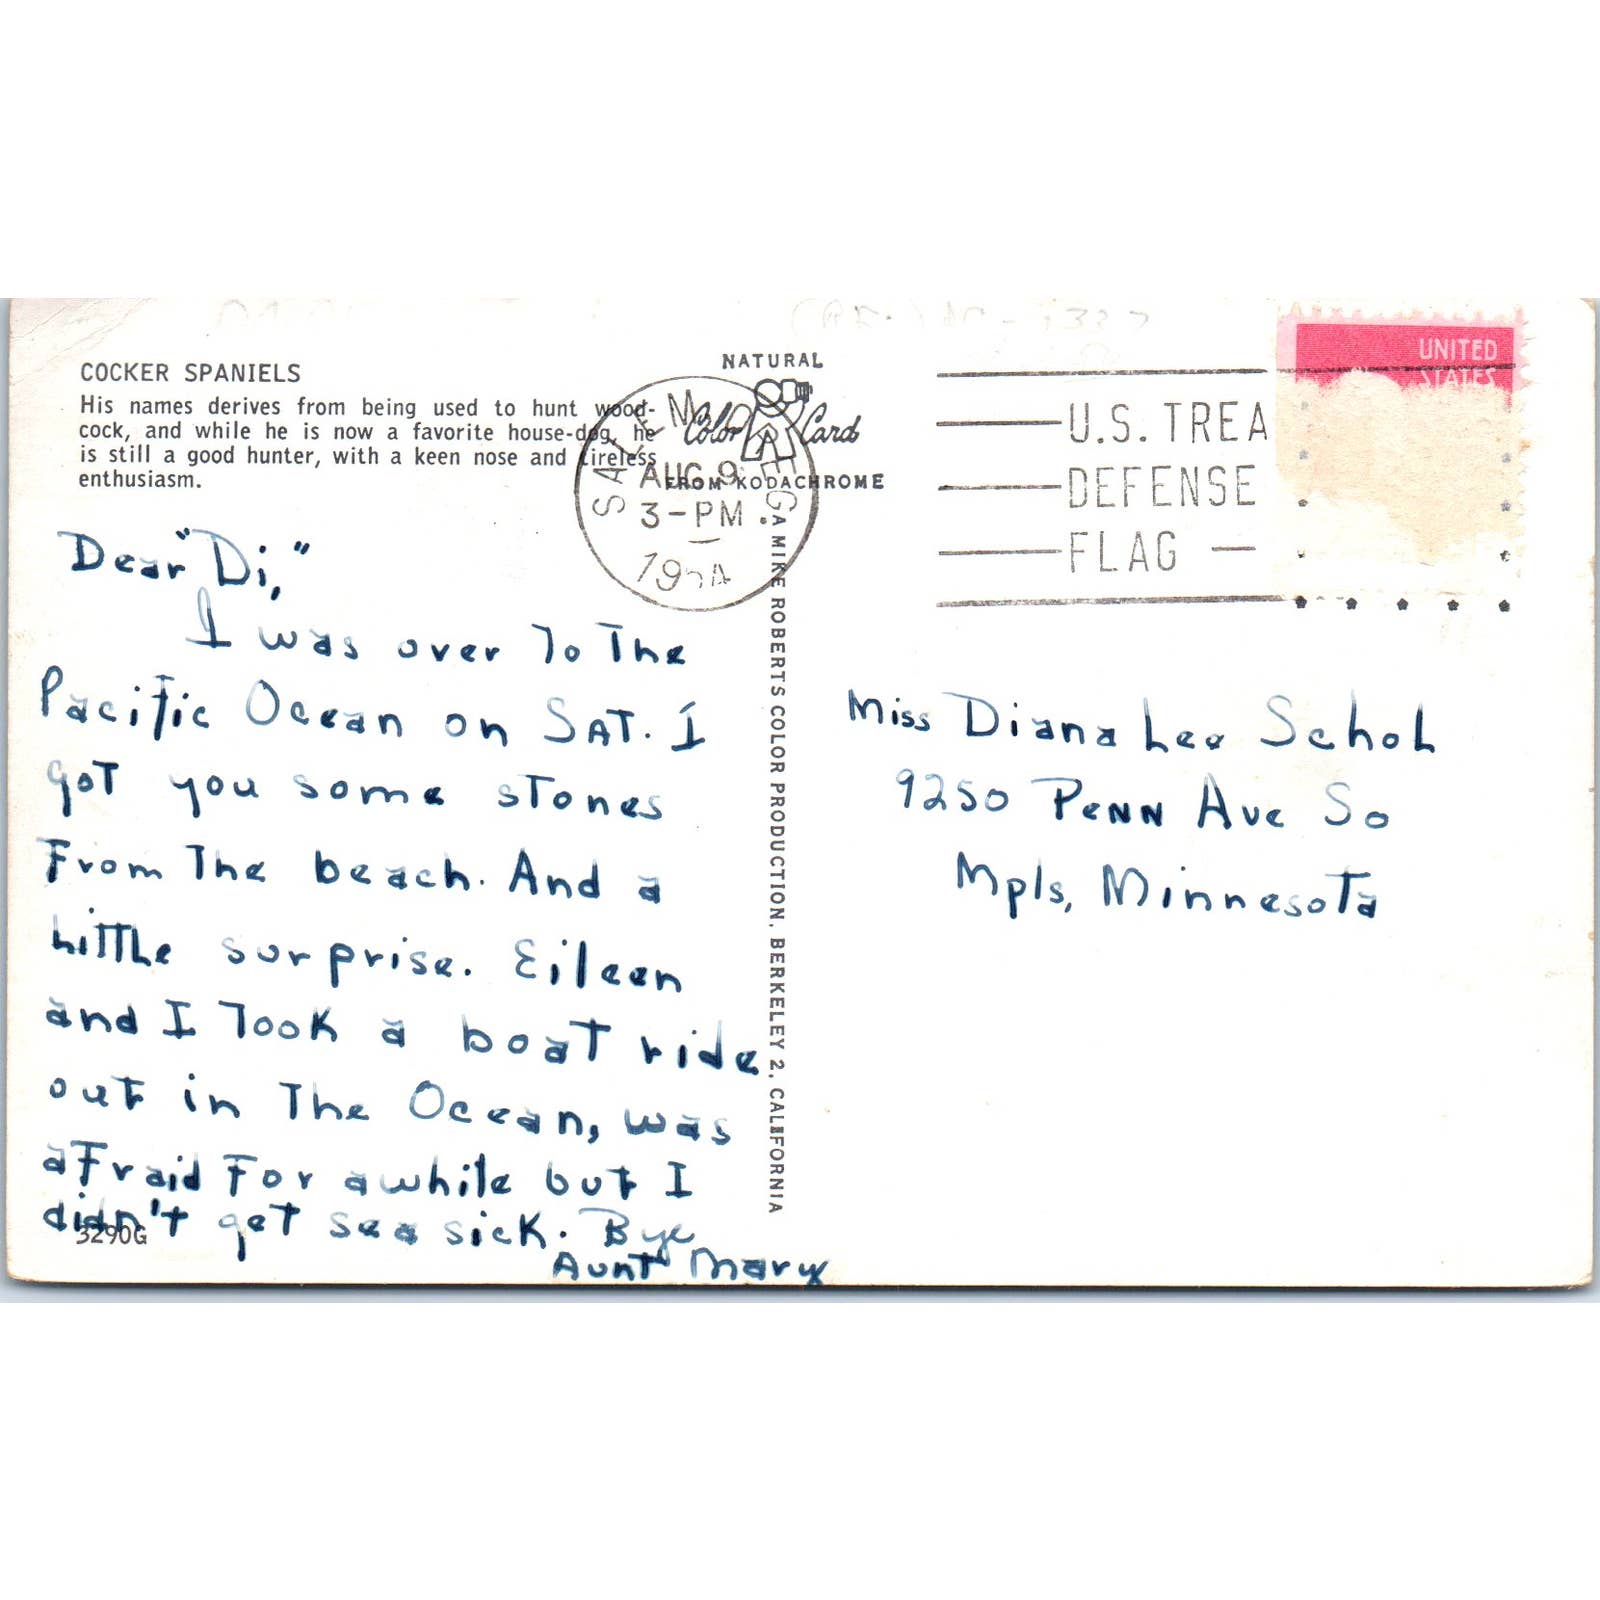 COCKER SPANIELS
His names derives from being used to hunt wood-
cock, and while he is now a favorite house-dog, he
is still a good hunter, with a keen nose and tireless
enthusiasm.
NATURAL
Color Card
FROM KODACHROME
SALEM OREG.
AUG 9
3-PM
U.S. TREA
DEFENSE
FLAG
UNITED
STATES
Dear "Di,"
I was over To The
Pacific Ocean on SAT. I
goT you some sTones
From The beach. And a
LiTTLe surprise. Eileen
and I Took a boaT ride
out in The Ocean, was
aFraid For awhile but I
didn't get sea sick. Bye
AunT Mary
3290G
A MIKE ROBERTS COLOR PRODUCTION, BERKELEY 2, CALIFORNIA
Miss Diana Lee SchoL
9250 PeNN Ave So
Mpls, MinnesoTa